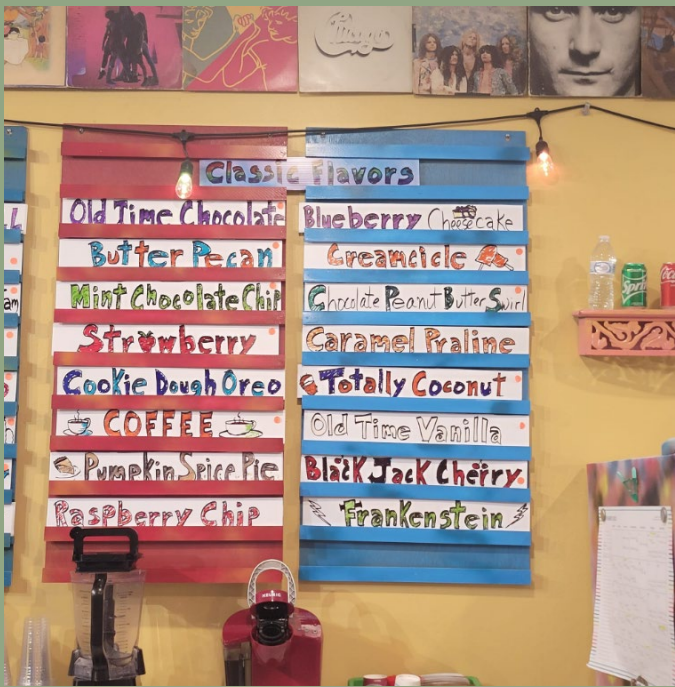 Chicago
Classic Flavors
Old Time Chocolate
Butter Pecan
Mint Chocolate Chip
Strawberry
Cookie Dough Oreo
COFFEE
Pumpkin Spice Pie
Raspberry Chip
Blueberry Cheesecake
Creamcicle
Chocolate Peanut Butter Swirl
Caramel Praline
Totally Coconut
Old Time Vanilla
Black Jack Cherry
Frankenstein
Sprite
KEURIG